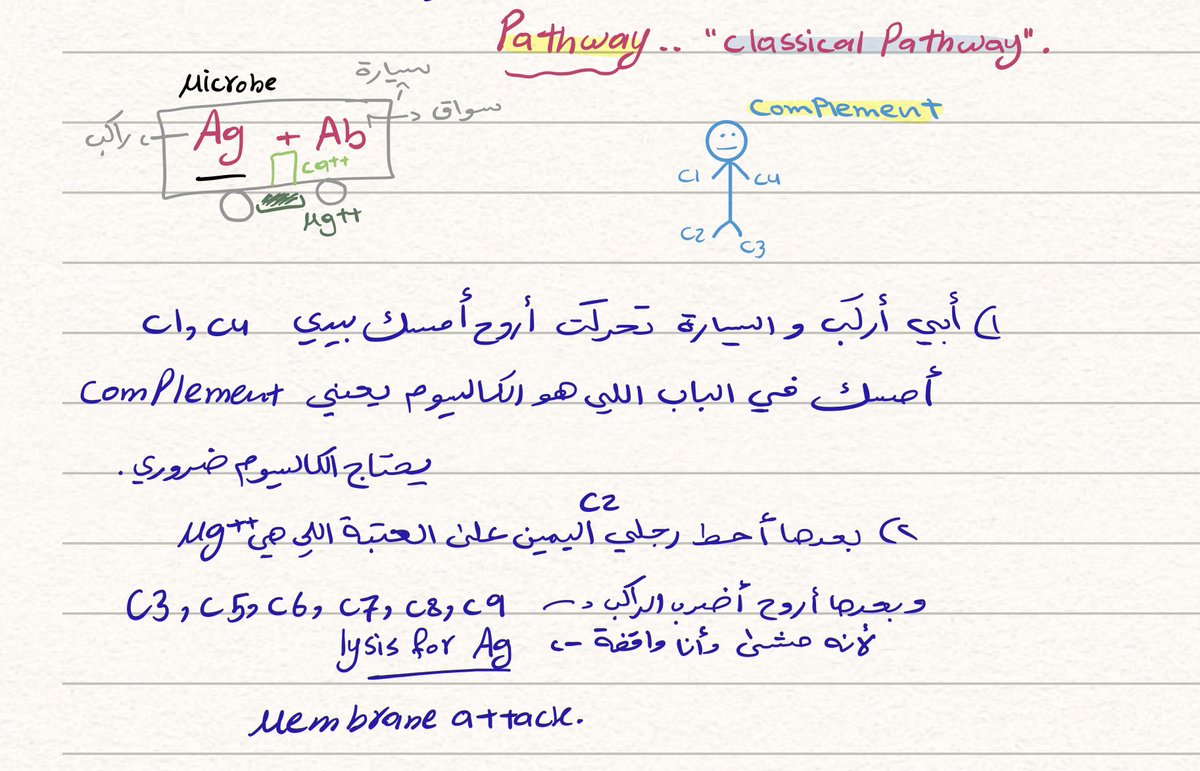 Pathway.. "Classical Pathway".
Microbe
سيارة
سواق
راكب
Ag + Ab
Ca++
Mg++
Complement
C1
C4
C2
C3
١) أبي أركب و السيارة تحركت أروح أمسك بيدي C1, C4
أمسك في الباب اللي هو الكالسيوم يعني Complement
يحتاج الكالسيوم ضروري.
C2
٢) بعدها أحط رجلي اليمين على العتبة اللي هي Mg++
و بعدها أروح أضرب الراكب -> C3, C5, C6, C7, C8, C9
لأنه مشى وأنا واقفة -> lysis for Ag
Membrane attack.